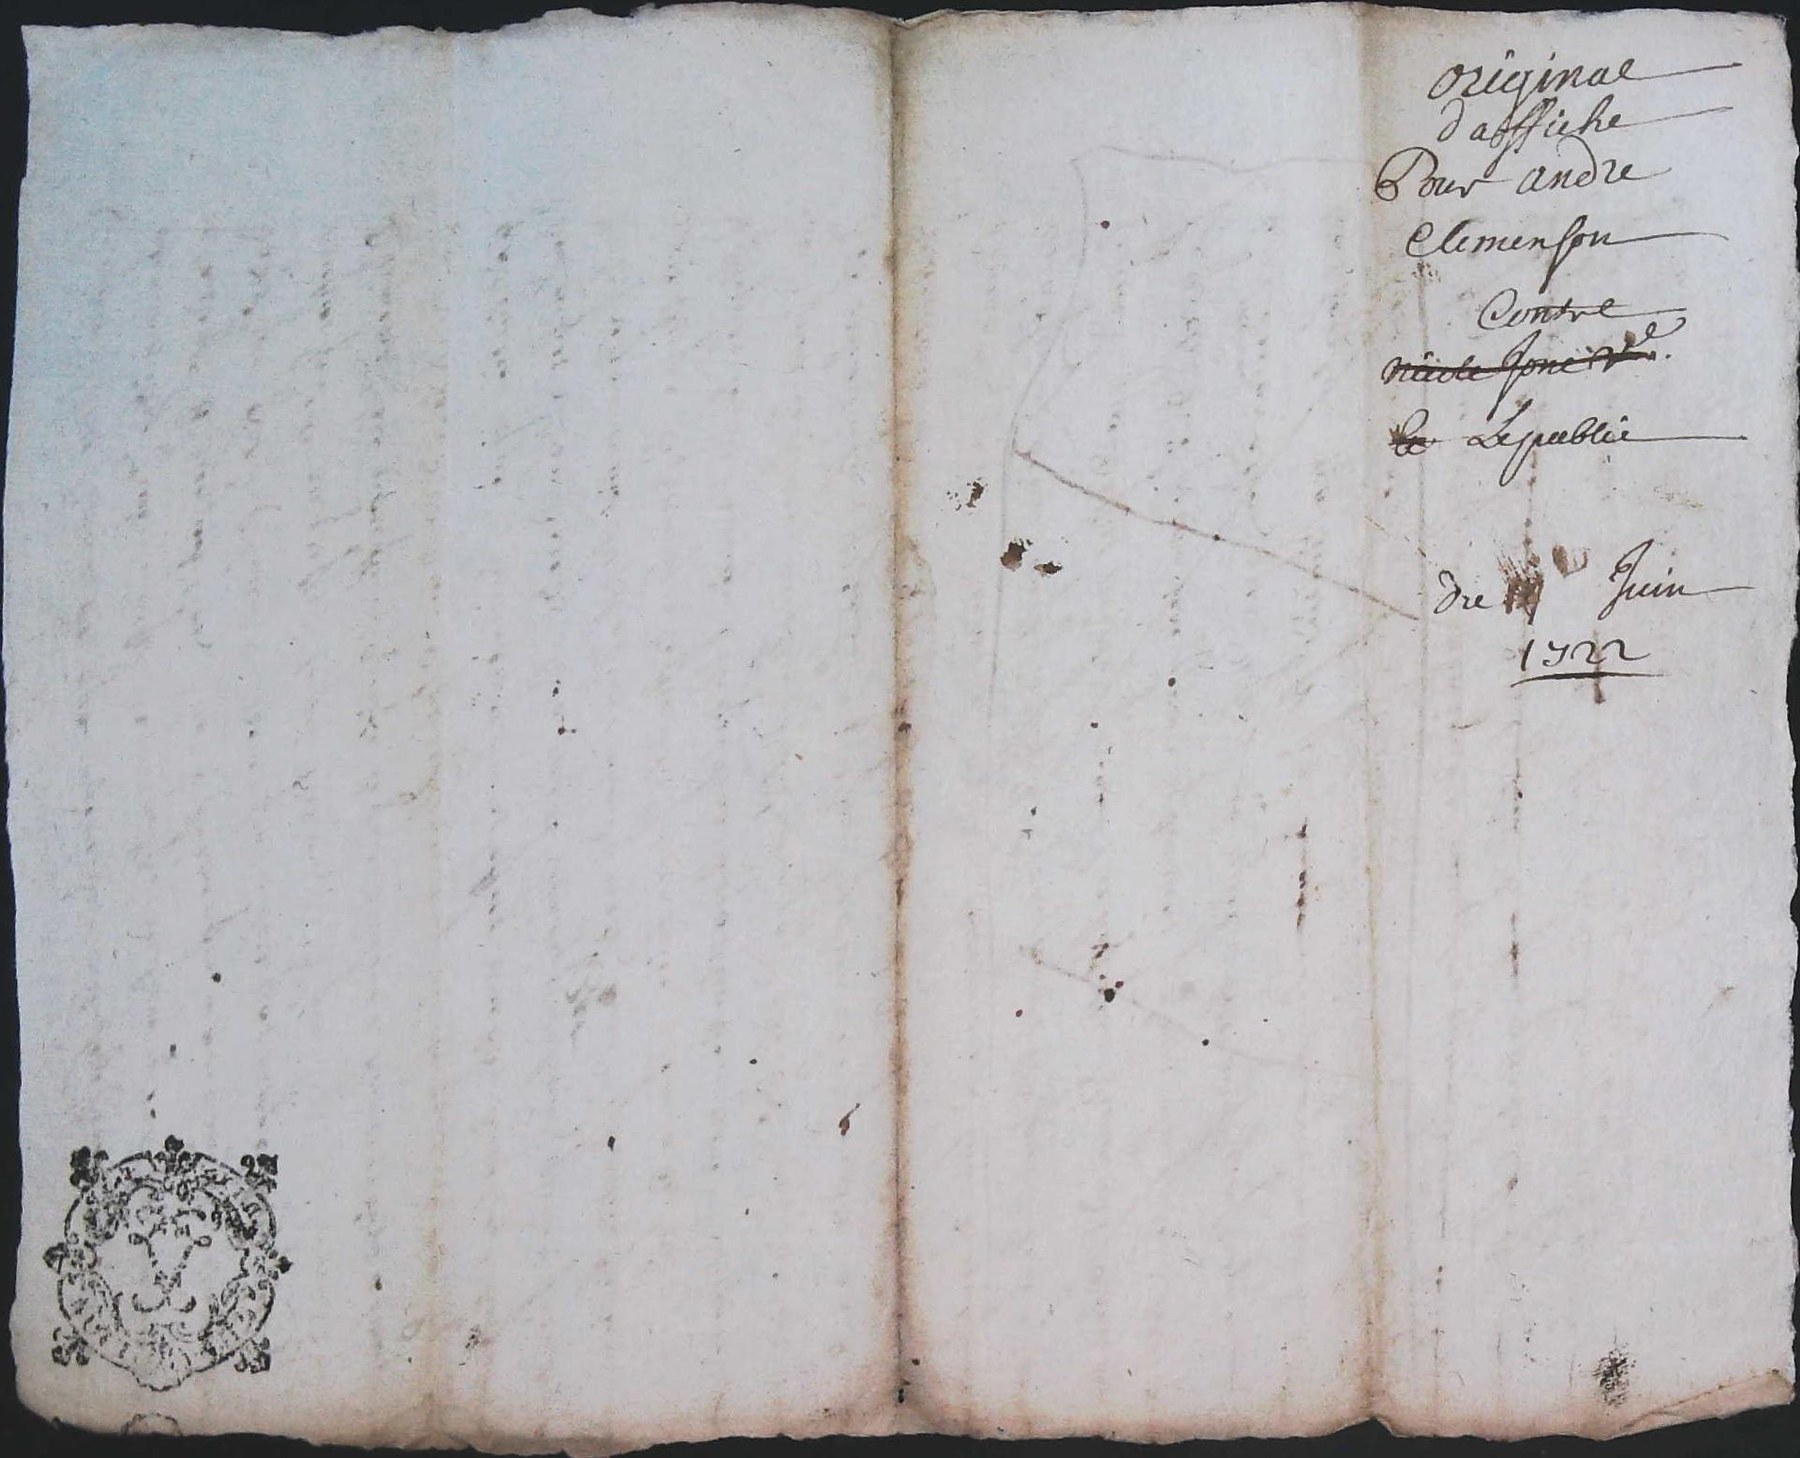 original
d affiche
Pour andre
Clemenson
Contre
Nicole Jone Vᵉ
le Le publié
Du Juin
1722